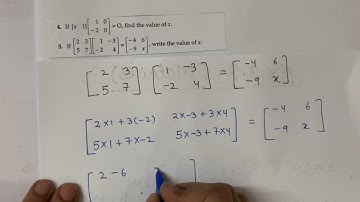 4. If [x 1] [1 0 -2 0] = O, find the value of x.
5. If [2 3 5 7] [1 -3 -2 4] = [-4 6 -9 x], write the value of x.
[2 3 [1 -3 = [-4 6
5 7] -2 4] -9 x]
[2×1+3(-2) 2×-3+3×4 = [-4 6
5×1+7×-2 5×-3+7×4] -9 x]
[2-6